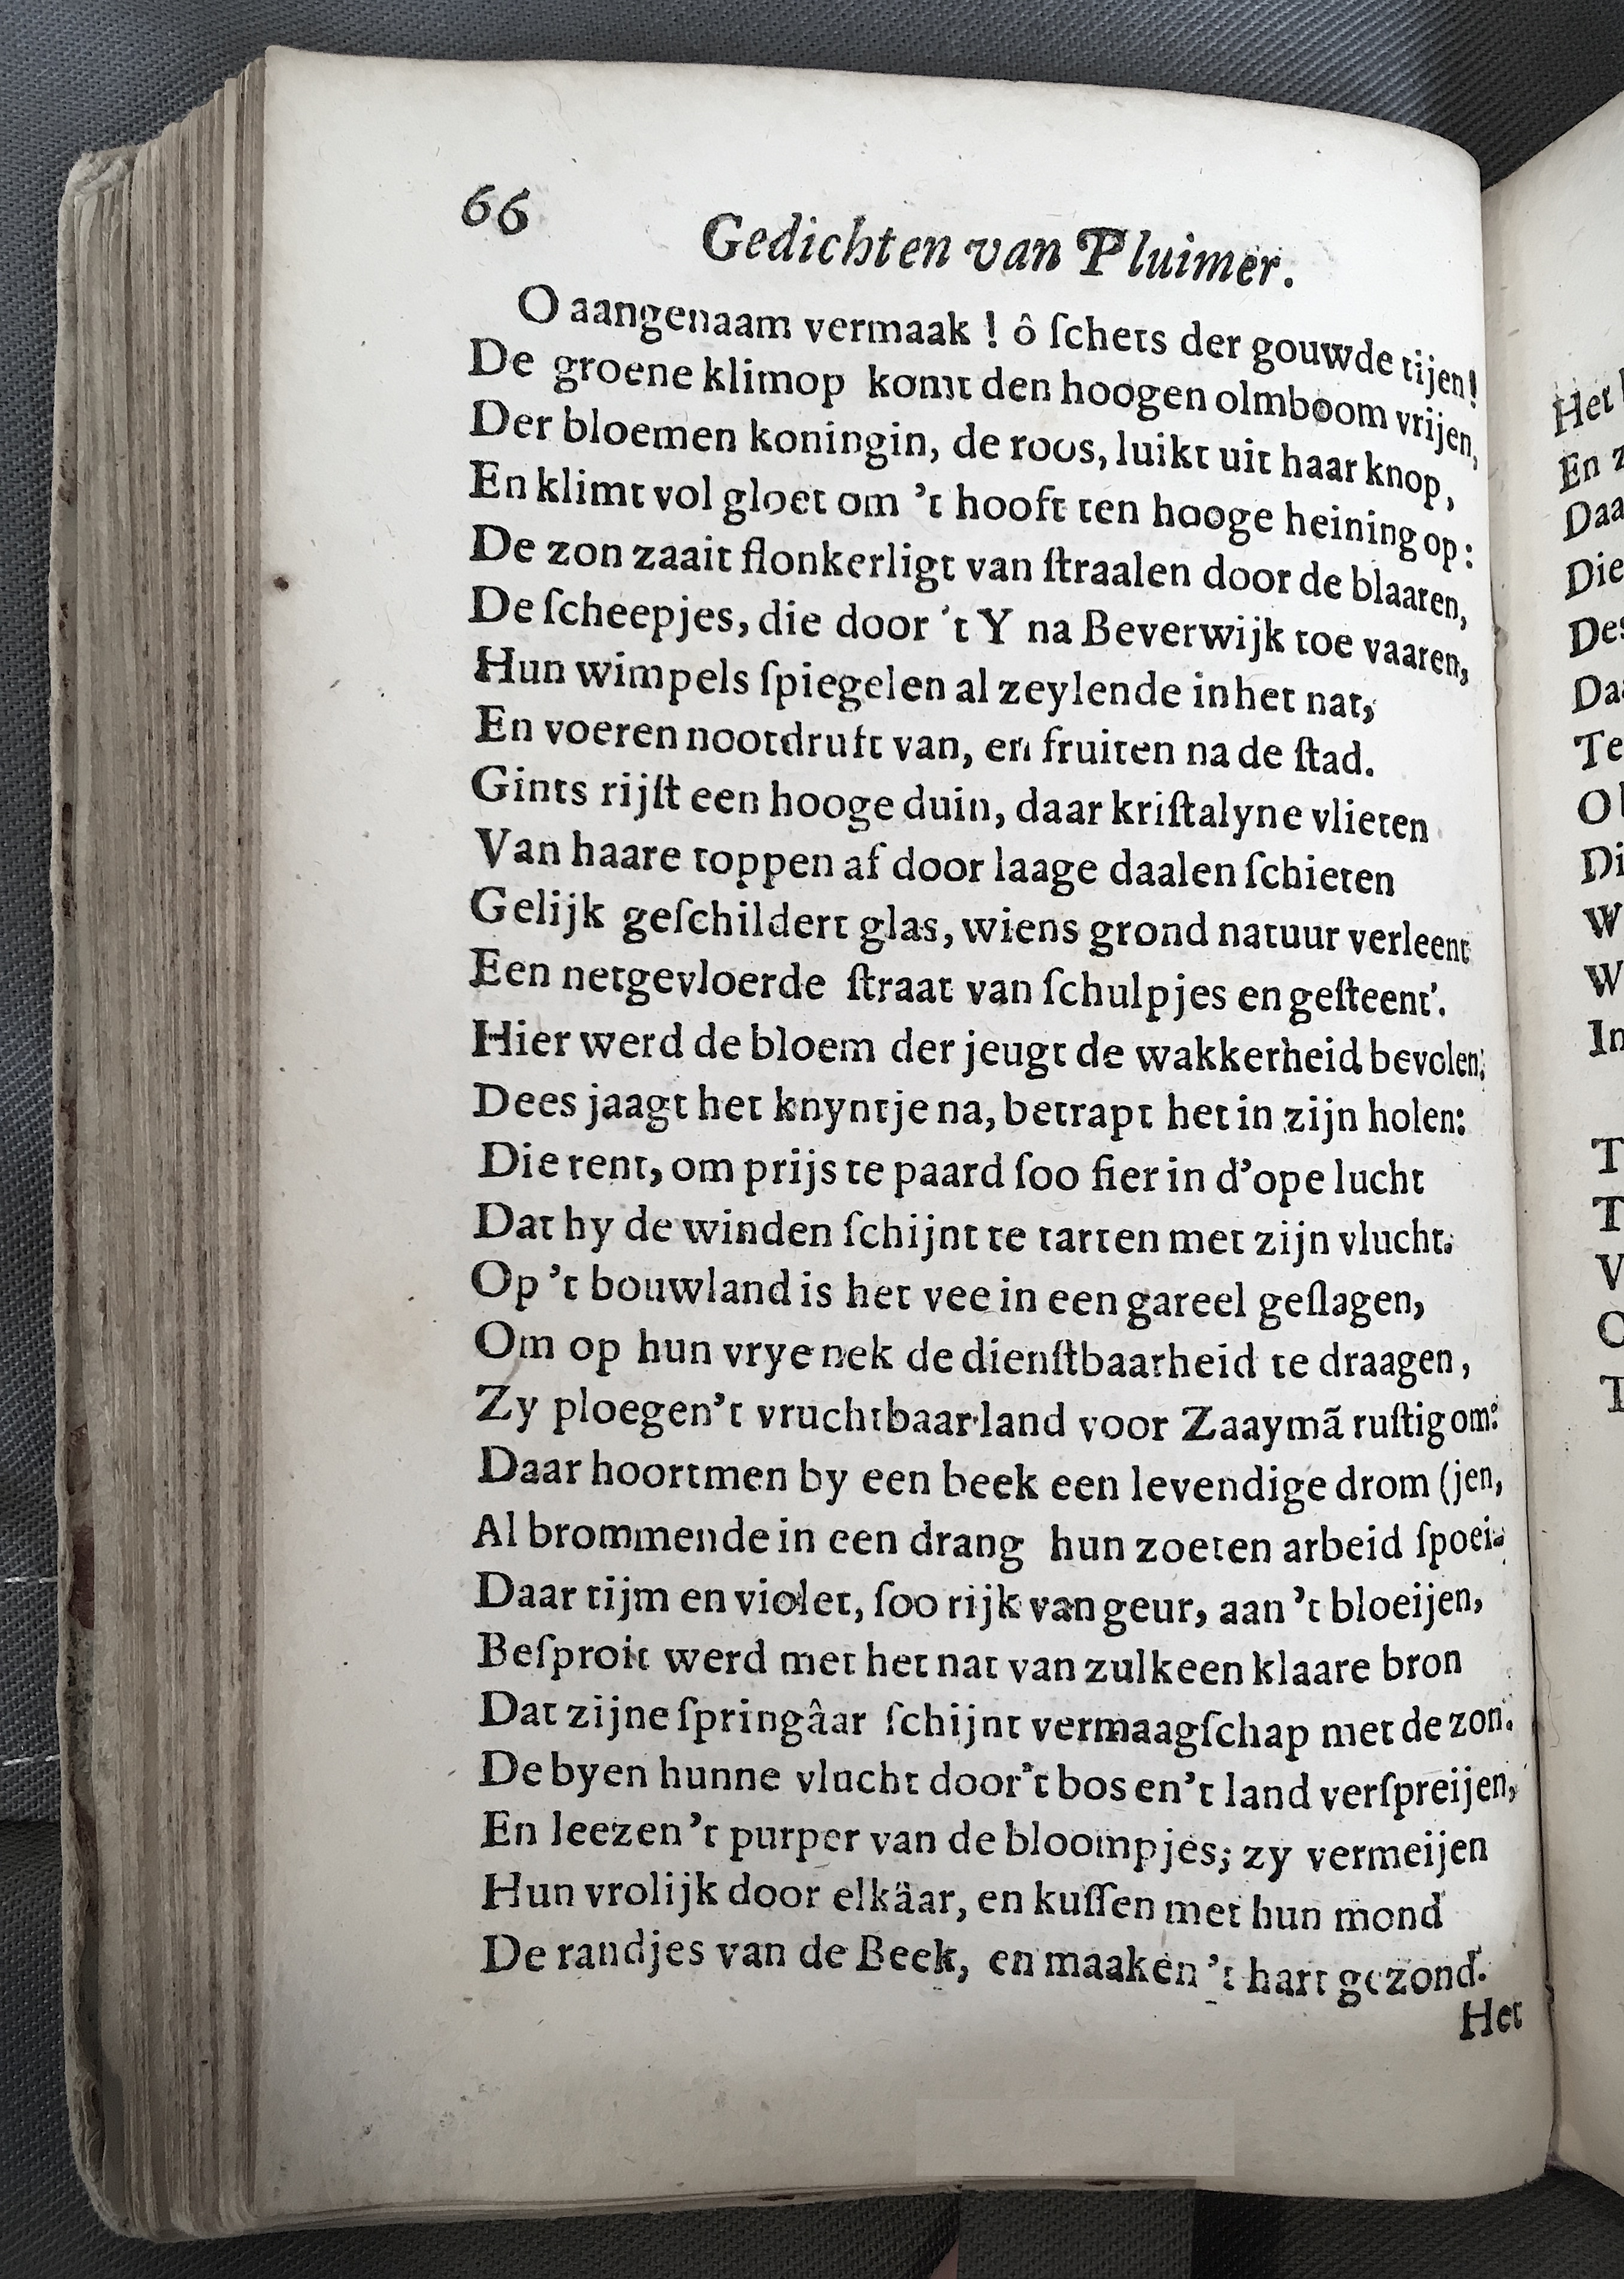 66
Gedichten van Pluimer.
O aangenaam vermaak ! ô ſchets der gouwde tijen!
De groene klimop komt den hoogen olmboom vrijen,
Der bloemen koningin, de roos, luikt uit haar knop,
En klimt vol gloet om 't hooft ten hooge heining op:
De zon zaait flonkerligt van ſtraalen door de blaaren,
De ſcheepjes, die door 't Y na Beverwijk toe vaaren,
Hun wimpels ſpiegelen al zeylende in het nat,
En voeren nootdruft van, en fruiten na de ſtad.
Gints rijſt een hooge duin, daar kriſtalyne vlieten
Van haare toppen af door laage daalen ſchieten
Gelijk geſchildert glas, wiens grond natuur verleent
Een netgevloerde ſtraat van ſchulpjes en geſteent'.
Hier werd de bloem der jeugt de wakkerheid bevolen;
Dees jaagt het knyntje na, betrapt het in zijn holen:
Die rent, om prijs te paard ſoo fier in d'ope lucht
Dat hy de winden ſchijnt te tarten met zijn vlucht.
Op 't bouwland is het vee in een gareel geſlagen,
Om op hun vrye nek de dienſtbaarheid te draagen,
Zy ploegen 't vruchtbaar land voor Zaaymã ruſtig om:
Daar hoortmen by een beek een levendige drom (jen,
Al brommende in een drang hun zoeten arbeid ſpoei-
Daar tijm en violet, ſoo rijk van geur, aan 't bloeijen,
Beſproit werd met het nat van zulk een klaare bron
Dat zijne ſpringâar ſchijnt vermaagſchap met de zon.
De byen hunne vlucht door 't bos en 't land verſpreijen,
En leezen 't purper van de bloompjes; zy vermeijen
Hun vrolijk door elkäar, en kuſſen met hun mond
De randjes van de Beek, en maaken 't hart gezond.
Het
Het
En
Daa
Die
Des
Daa
Te
O
Di
W
W
In
T
T
V
O
T